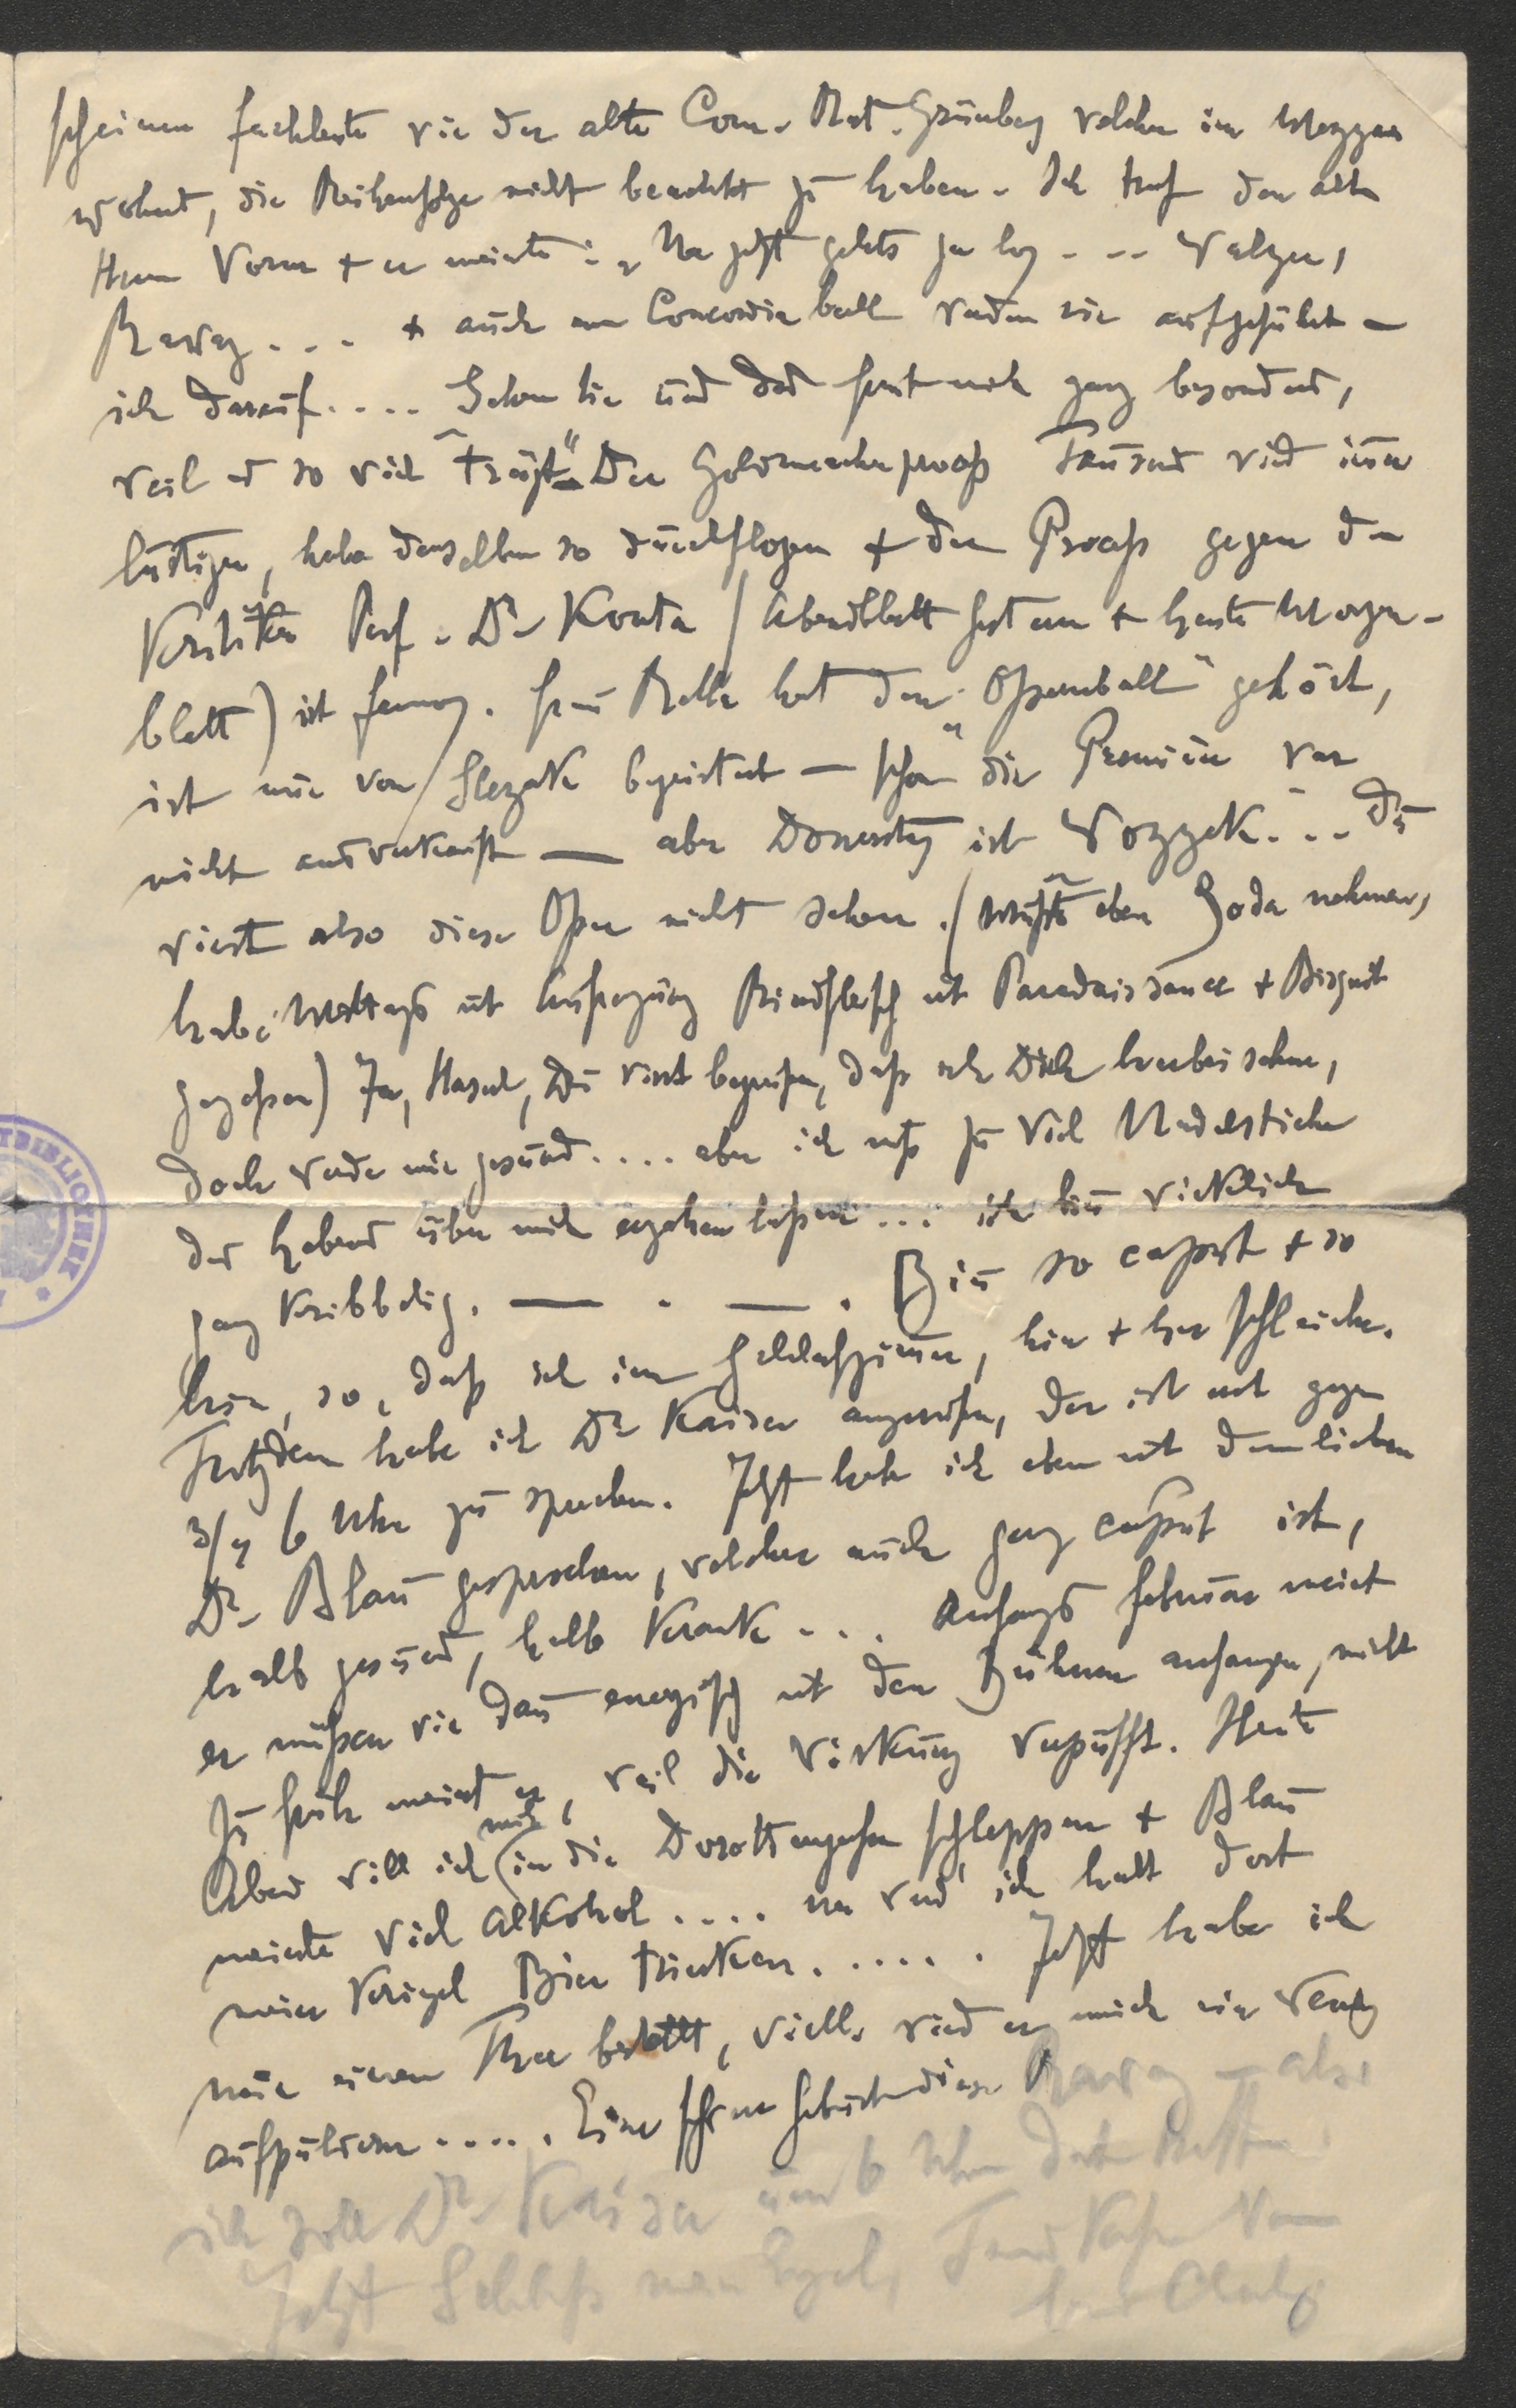 scheinen Fachleute wie der alte Com. Rat. Grünberg welcher im Meggen
wohnt, die Reihenfolge nicht beachtet zu haben. Ich traf den alten
Herrn Vorm + er meinte: „Na jetzt gehts ja los ... Walzer,
Ravag ... + auch am Concordiaball werden sie aufgeführt –
ich darauf .... Sehen Sie und das freut mich ganz besonders,
weil es so viel „trägt“. Der Goldmacherprozeß Tausend wird immer
lustiger, habe denselben so durchflogen + der Proceß gegen den
Kritiker Prof. Dr. Konta (Abendblatt gestern + heute Morgen-
blatt) ist famos. Frau Bella hat den „Opernball“ gehört,
ist nur von Slezak begeistert – schon die Premiere war
nicht ausverkauft – aber Donnerstag ist Wozzek ... Du
wirst also diese Oper nicht sehen. (Mußte eben Soda nehmen,
habe Mittags mit Aufregung Rindfleisch mit Paradaissauce + Bisquit
gegessen) Ja, Haserl, Du wirst begreifen, daß ich Dich herbeisehne,
doch werde nur gesund .... aber ich muß zu viel Nadelstiche
der über mich ergehen lassen ... ich bin wirklich
ganz kribbelig. — . — . Bin so caput + so
hin, so, daß ich im Schlafzimmer, hin + her schleiche.
Trotzdem habe ich Dr Kaiser angerufen, der ist erst gegen
3/4 6 Uhr zu sprechen. Jetzt habe ich eben mit dem lieben
Dr. Blau gesprochen, welcher auch ganz caput ist,
halb gesund, halb krank ... Anfangs Februar meint
er müßen wir dann energisch mit den Bühnen anfangen, nicht
zu früh meint er, weil die Wirkung verpufft. Heute
Abend will ich mich in die Dorotheergasse schleppen + Blau
meinte viel Alkohol .... na werd' ich halt dort
mein Krügel Bier trinken ...... Jetzt habe ich
mir einen Thee bestellt, viell. wird er mich ein wenig
aufpulvern ..... Eine schwere Geburt diese Ravag – also
ich soll Dr. Kaiser um 6 Uhr dort treffen.
Jetzt Schluß mein Engel, Tausend Küsse von